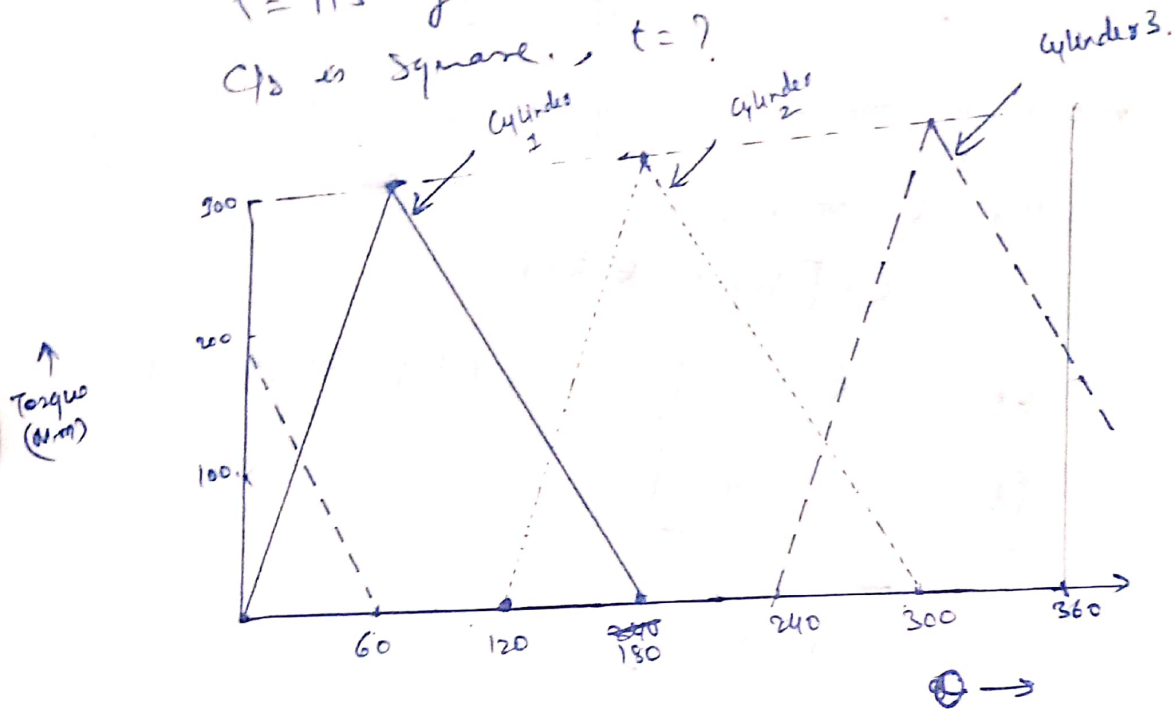 C/s is square., t = ?
Cylinder 3.
Cylinder
1
Cylinder
2
300
200
100
↑
Torque
(N-m)
60
120
180
240
300
360
θ →